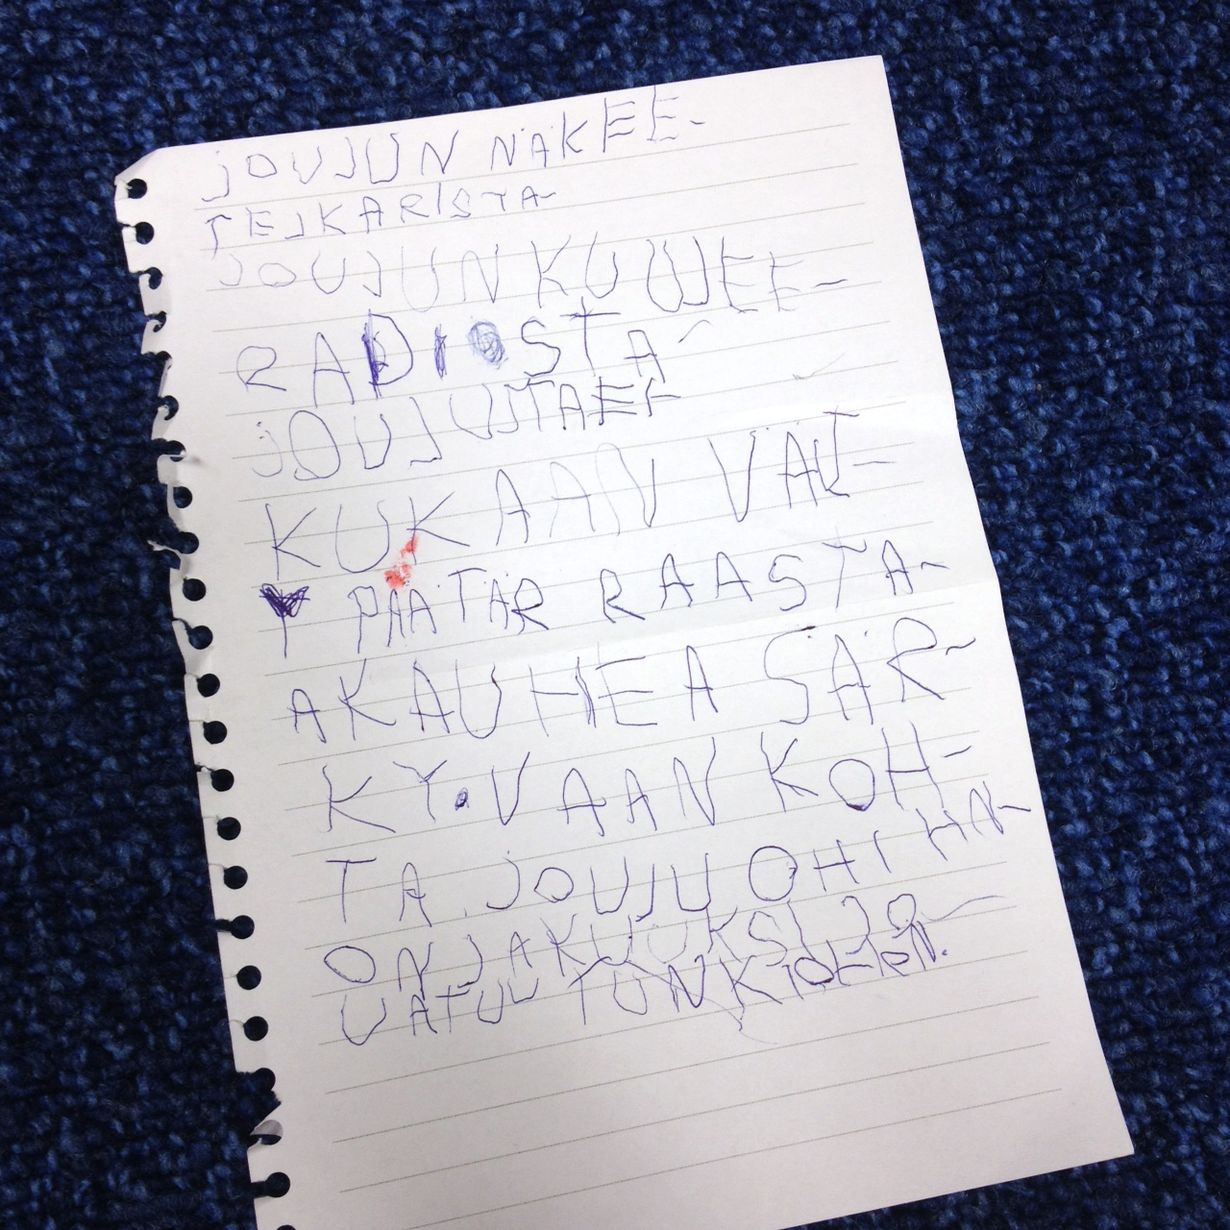 JOUJUN NÄKEE-
TEJKARISTA-
JOUJUN KUULEE-
RADIOSTA-
JOUJUSTAEI-
KUKAAN VÄLI-
PÄÄTÄR RAASTA-
A KAUHEA SÄR-
KY. VAAN KOH-
TA. JOUJU OHI HN-
ON JA KUUKSI JO-
UATUU TONKIDEEN.